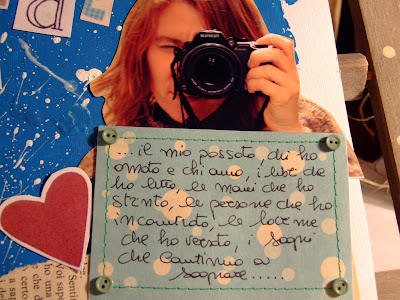 a d
... il mio passato chi ho
amato e chi amo, i libri che
ho letto, le mani che ho
stretto, le persone che ho
incontrato, le lacrime
che ho versato, i sogni
che continuo a
sognare.....
Sentim
Voi sape